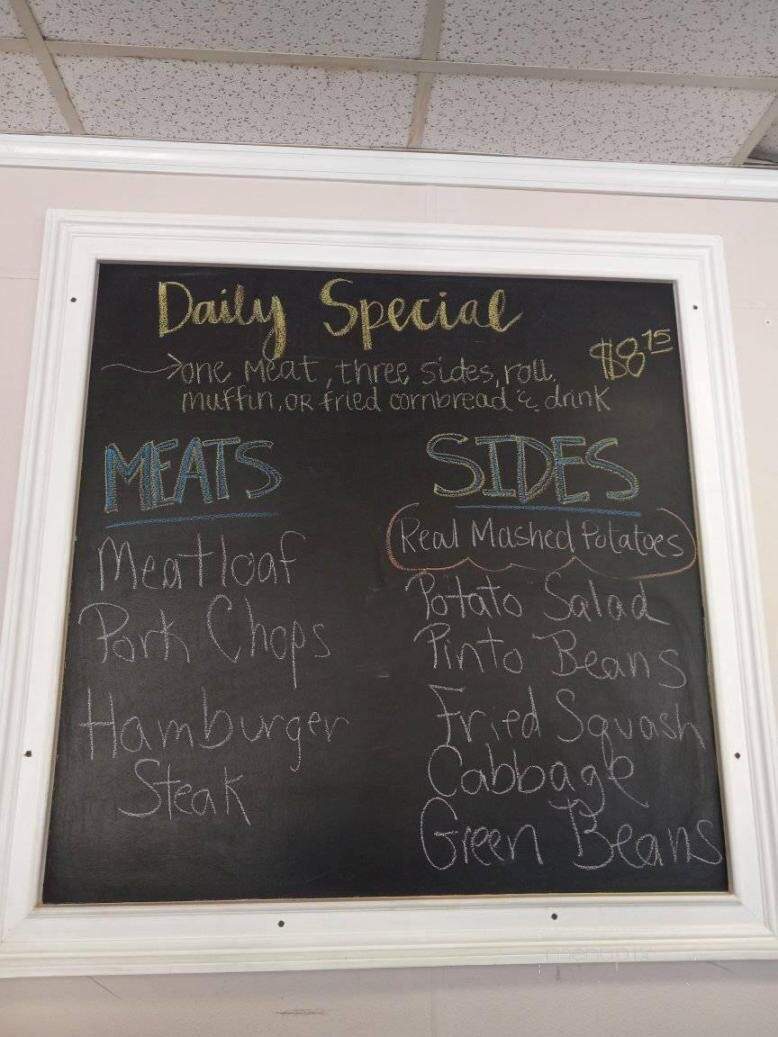 Daily Special
$8.15
one meat, three sides, roll,
muffin, OR fried cornbread & drink
MEATS
Meatloaf
Pork Chops
Hamburger
Steak
SIDES
Real Mashed Potatoes
Potato Salad
Pinto Beans
Fried Squash
Cabbage
Green Beans